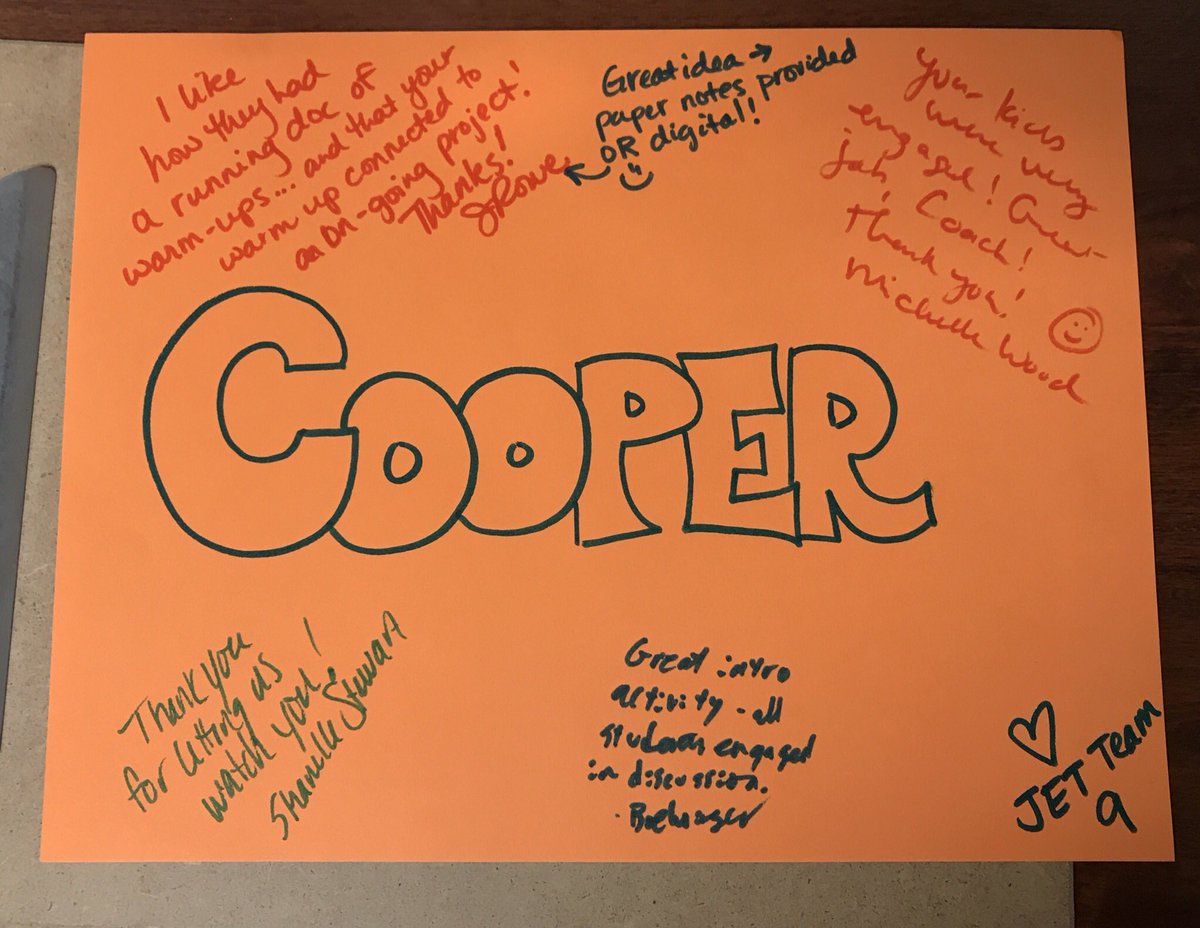 I like
how they had
a running doc of
warm-ups... and that your
warm up connected to
an on-going project!
Thanks!
JRowe
Great idea →
paper notes provided
OR digital!
your kids
were very
engaged! Great
job, Coach!
Thank you!
Michelle Wood
COOPER
Thank you
for letting us
watch you!
Shanelle Stewart
Great intro
activity - all
students engaged
in discussion.
♡ JET Team
9